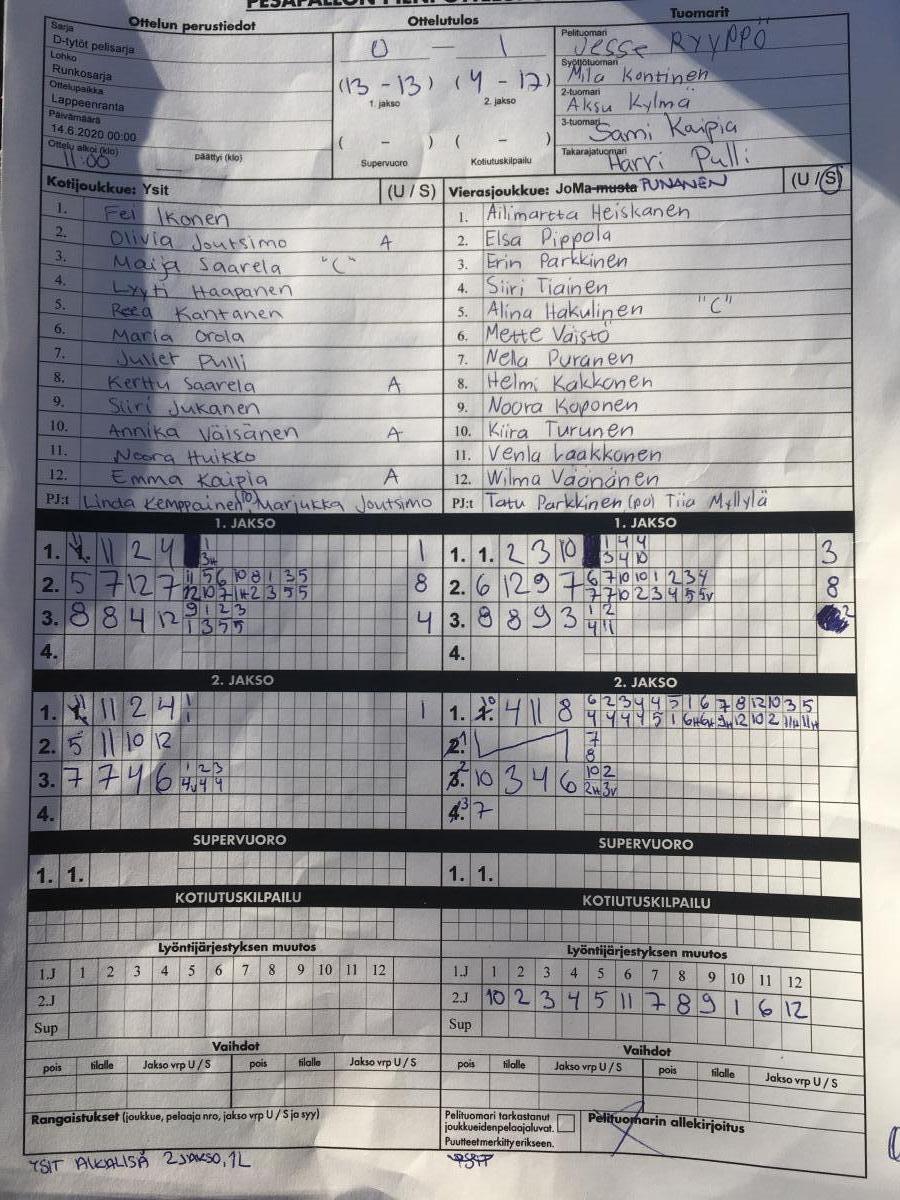 Ottelun perustiedot
Ottelutulos
Tuomarit
Sarja
D-tytöt pelisarja
Lohko
Runkosarja
Ottelupaikka
Lappeenranta
Päivämäärä
14.6.2020 00:00
Ottelu alkoi (klo)
11:00 päättyi (klo)
0 — 1
(13 - 13) (4 - 17)
1. jakso 2. jakso
( - ) ( - )
Supervuoro Kotiutuskilpailu
Pelituomari
Jesse RYYPPÖ
Syöttötuomari
Mila Kontinen
2-tuomari
Aksu Kylmä
3-tuomari
Sami Kaipia
Takarajatuomari
Harri Pulli
Kotijoukkue: Ysit (U / S)
1. Fei Ikonen
2. Olivia Joutsimo A
3. Maija Saarela "C"
4. Lyyti Haapanen
5. Reea Kantanen
6. Maria Orola
7. Juliet Pulli
8. Kerttu Saarela A
9. Siiri Jukanen
10. Annika Väisänen A
11. Noora Huikko
12. Emma Kaipia A
PJ:t Linda Kemppainen, Marjukka Joutsimo
Vierasjoukkue: JoMa musta PUNANEN (U / S)
1. Ailimartta Heiskanen
2. Elsa Pippola
3. Erin Parkkinen
4. Siiri Tiainen
5. Alina Hakulinen "C"
6. Mette Väistö
7. Nella Puranen
8. Helmi Kakkonen
9. Noora Koponen
10. Kiira Turunen
11. Venla Laakkonen
12. Wilma Väänänen
PJ:t Tatu Parkkinen (pa) Tiia Myllylä
1. JAKSO
1. 1. 11 2 4 1
2. 5 7 12 7 11 5 6 10 8 1 3 5 8
3. 8 8 4 12 9 1 2 3 4
1 3 5 5
4.
1. JAKSO
1. 1. 2 3 10 1 4 4 3
3 4 10
2. 6 12 9 7 6 7 10 10 1 2 3 4 8
7 7 10 2 3 4 5 5v
3. 8 8 9 3 1 2 2
4 11
4.
2. JAKSO
1. 1. 11 2 4 1 1
2. 5 11 10 12
3. 7 7 4 6 1 2 3
4v 4 4
4.
2. JAKSO
1. 1. 10 4 11 8 6 2 3 4 4 5 1 6 7 8 12 10 3 5
4 4 4 4 5 1 6H 6H 9H 12 10 2 11H 11H
2. 1 7
8
3. 2 10 3 4 6 10 2
2H 3v
4. 3 7
SUPERVUORO
1. 1.
SUPERVUORO
1. 1.
KOTIUTUSKILPAILU
KOTIUTUSKILPAILU
Lyöntijärjestyksen muutos
1.J 1 2 3 4 5 6 7 8 9 10 11 12
2.J
Sup
Lyöntijärjestyksen muutos
1.J 1 2 3 4 5 6 7 8 9 10 11 12
2.J 10 2 3 4 5 11 7 8 9 1 6 12
Sup
Vaihdot
pois tilalle Jakso vrp U / S pois tilalle Jakso vrp U / S
Vaihdot
pois tilalle Jakso vrp U / S pois tilalle Jakso vrp U / S
Rangaistukset (joukkue, pelaaja nro, jakso vrp U / S ja syy)
Pelituomari tarkastanut
joukkueiden pelaajaluvat.
Puutteet merkitty erikseen.
Pelituomarin allekirjoitus
YSIT AIKALISÄ 2 JAKSO, 1L